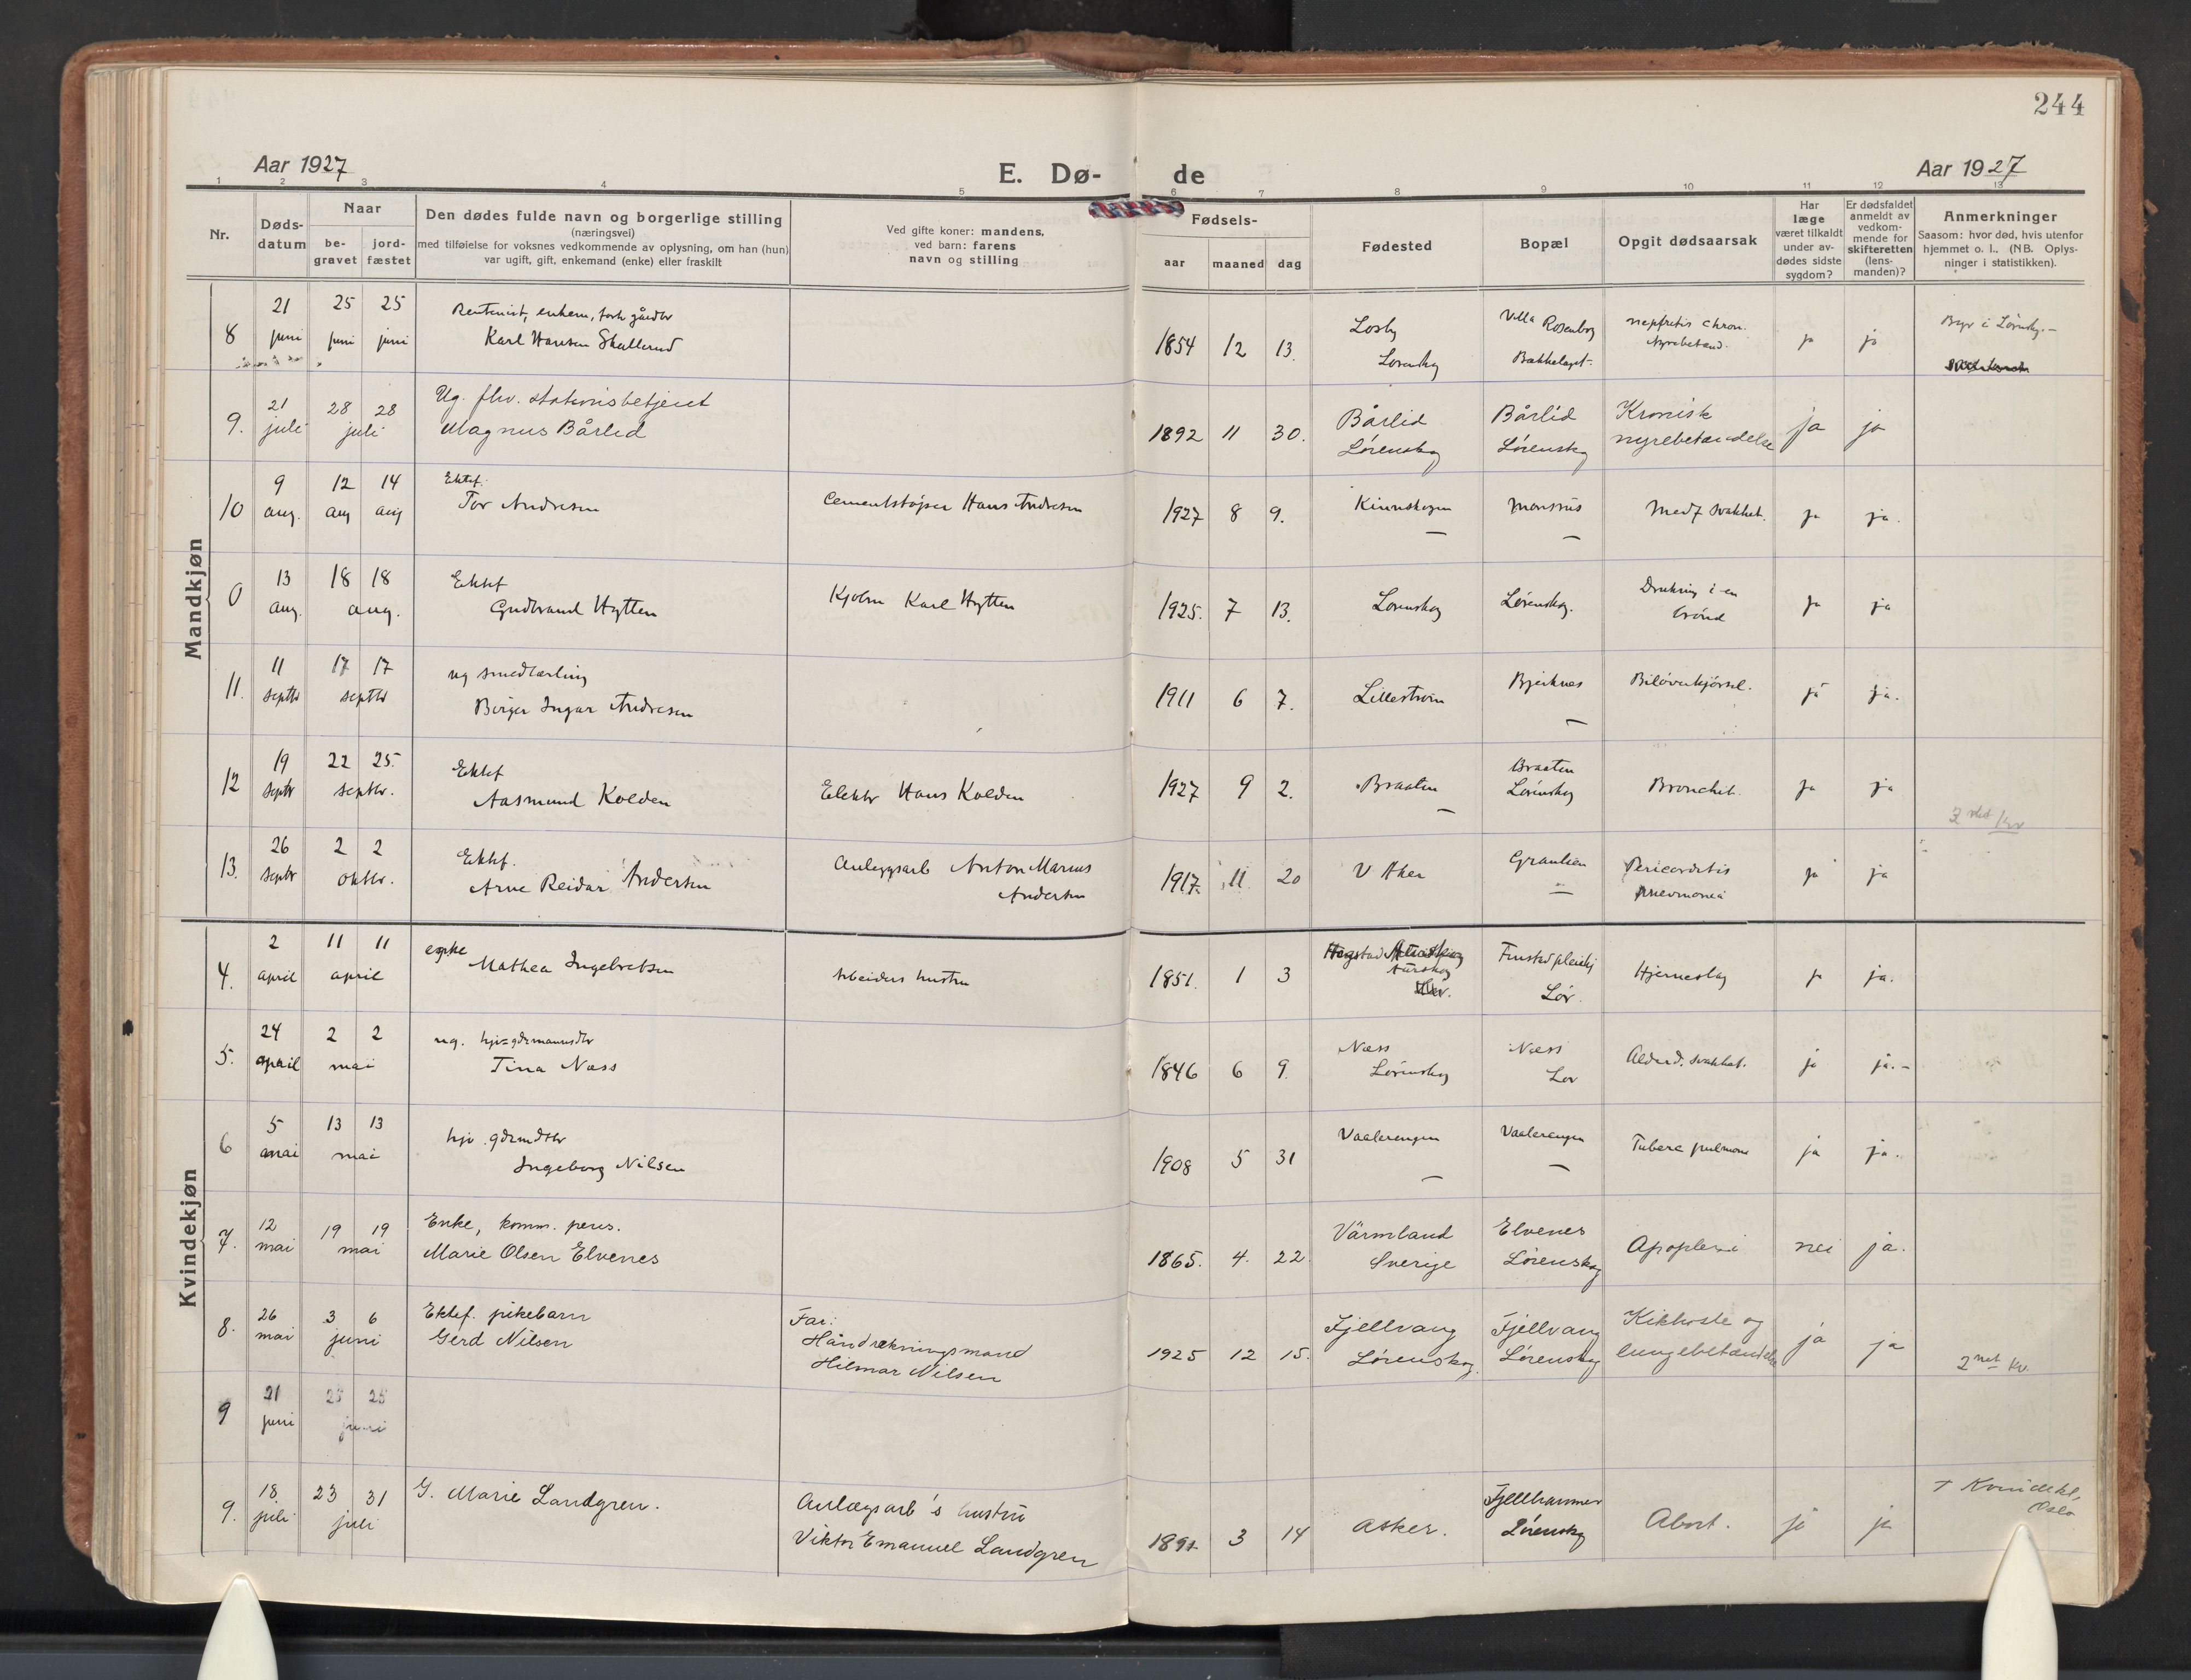 244
Aar 1927
E. Dø- de
Aar 1927
1 2 3 4 5 6 7 8 9 10 11 12 13
Nr.
Døds-
datum
Naar
be-
gravet
jord-
fæstet
Den dødes fulde navn og borgerlige stilling
(næringsvei)
med tilføielse for voksnes vedkommende av oplysning, om han (hun)
var ugift, gift, enkemand (enke) eller fraskilt
Ved gifte koner: mandens,
ved barn: farens
navn og stilling
Fødsels-
aar maaned dag
Fødested
Bopæl
Opgit dødsaarsak
Har
læge
været tilkaldt
under av-
dødes sidste
sygdom?
Er dødsfaldet
anmeldt av
vedkom-
mende for
skifteretten
(lens-
manden)?
Anmerkninger
Saasom: hvor død, hvis utenfor
hjemmet o. l., (NB. Oplys-
ninger i statistikken).
Mandkjøn
8 21 juni 25 juni 25 juni
Karl Hansen Skullerud
1854 12 13.
Losby
Lørenskog
Villa Rosenborg
Bækkelaget
chron.
ja ja
9. 21 juli 28 28 juli
Ug. fhv. stationsbetjent
Magnus Bårlid
1892 11 30.
Bårlid
Lørenskog
Bårlid
Lørenskog
Kronisk
nyrebetændelse
ja ja
10 9 aug. 12 aug 14 aug
Ektef.
Tor Andresen
Cementstøper Hans Andresen
1927 8 9.
Monsrus
Medf svakhet.
ja ja.
0 13 aug. 18 18 aug.
Ektef
Gudbrand Hytten
Karl Hytten
1925. 7 13.
Lørenskog
Lørenskog.
Drukning i en
brønd
ja ja
11. 11 septbr 17 17 septbr
ug smedlærling
Birger Ingar Andresen
1911 6 7.
Lillestrøm
Bjerknes
Biloverkjørsel.
ja ja.
12 19 septbr 22 25. septbr.
Ektef
Aasmund Kolden
Elektr Hans Kolden
1927 9 2.
Braaten
Braaten
Lørenskog
Bronchit.
ja ja
13. 26 septbr 2 2 oktbr.
Ektef.
Arne Reidar Andersen
Anleggsarb Anton Marius
Andersen
1917. 11 20
V Aker
Pericarditis
pneumonia
ja ja
Kvindekjøn
4. 2 april 11 11 april
enke
Mathea Ingebretsen
Arbeiders hustru
1851. 1 3
Aurskog
Finstad pleiehj
Lør.
Hjerneslag
ja ja.
5. 24 april 2 2 mai
ug.
Tina Næss
1846 6 9.
Næss
Lørenskog
Næss
Lør
Alderd. svakhet.
ja ja.-
6 5 mai 13 13 mai
Ingeborg Nilsen
1908 5 31
Vaalerengen
Vaalerengen
Tuberc pulmonum
ja ja.
7. 12 mai 19 19 mai
Enke, komm. pens.
Marie Olsen Elvenes
1865. 4. 22.
Värmland
Sverige
Elvenes
Lørenskog
Apoplexi
nei ja.
8. 26 mai 3 6 juni
Ektef. pikebarn
Gerd Nilsen
Far:
Håndrekningsmand
Hilmar Nilsen
1925 12 15.
Fjellvang
Lørenskog.
Fjellvang
Lørenskog
Kikhoste og
lungebetændelse
ja ja
2 net kv.
9 21 juni 25 25 juni
9. 18. juli 23 31 juli
G. Marie Landgren.
Anlægsarb's hustru
Viktor Emanuel Landgren
3 14
Asker.
Fjellhammer
Lørenskog
Abort.
ja ja
+ Kvindekl,
Oslo